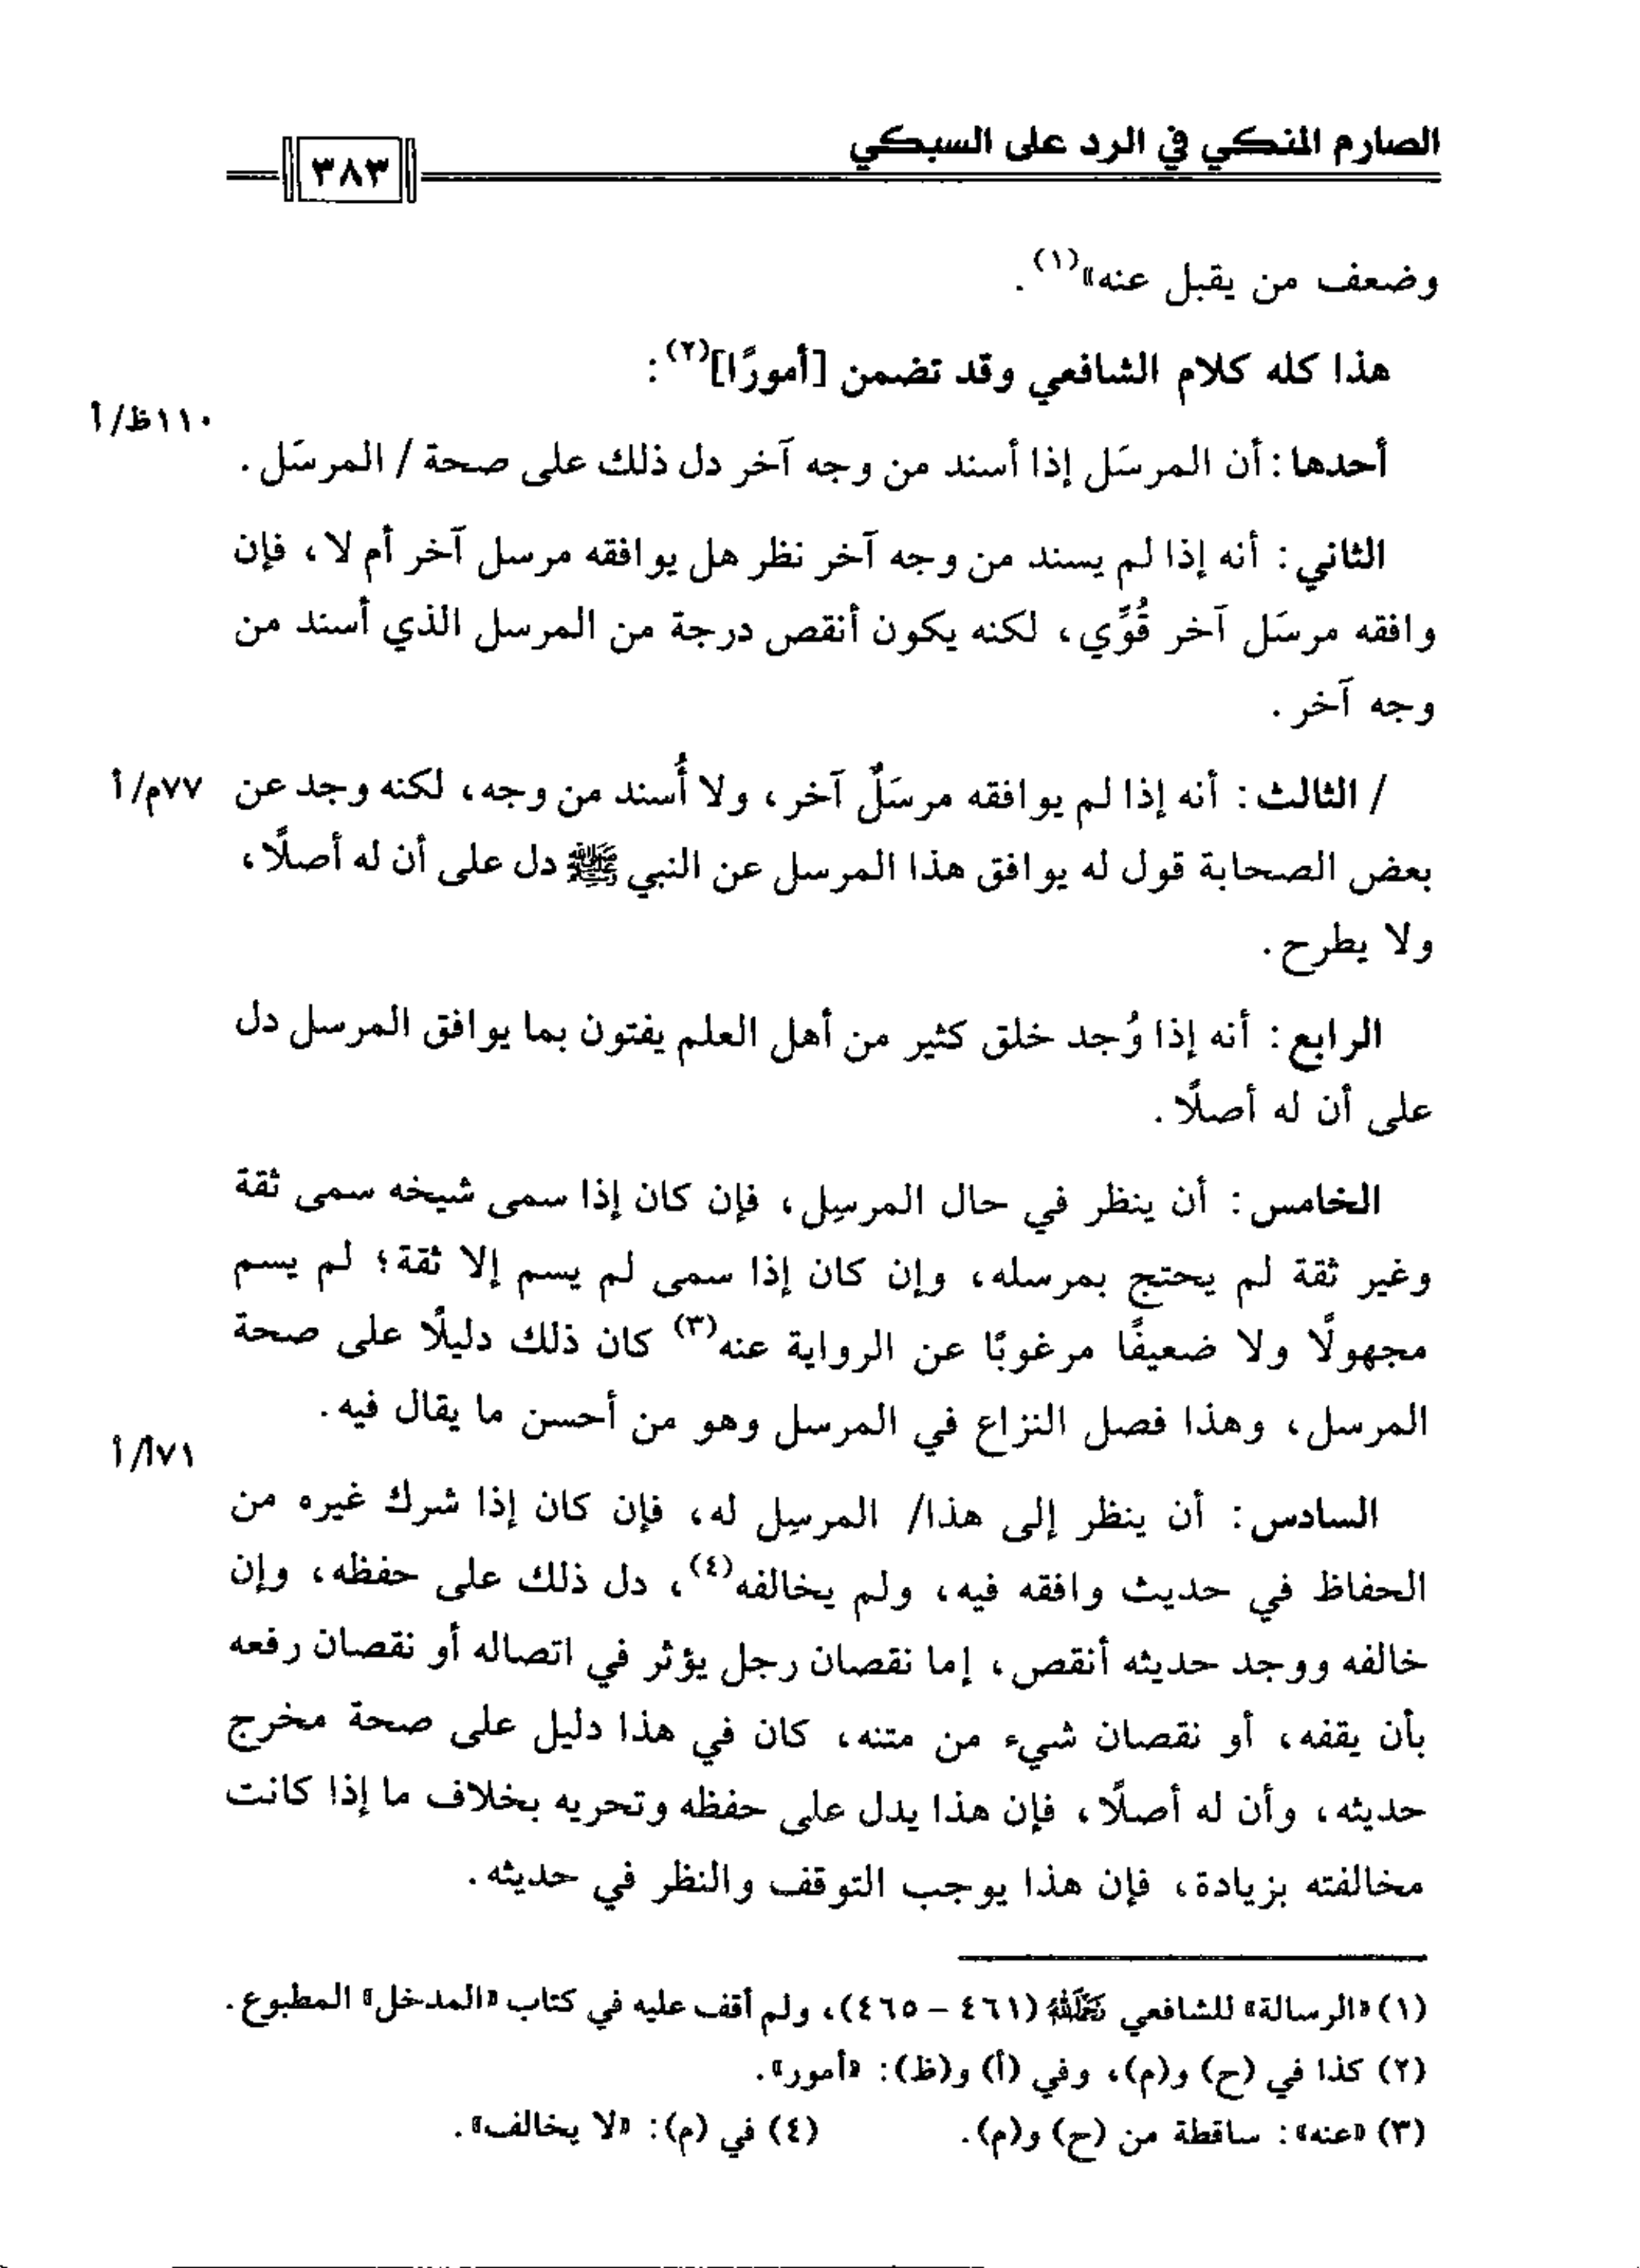 الصارم المنكي في الرد على السبكي
٣٨٣
وضعف من يقبل عنه»(١).
هذا كله كلام الشافعي وقد تضمن [أمورًا](٢):
١١٠ظ/أ
أحدها: أن المرسَل إذا أسند من وجه آخر دل ذلك على صحة / المرسَل.
الثاني: أنه إذا لم يسند من وجه آخر نظر هل يوافقه مرسل آخر أم لا، فإن
وافقه مرسَل آخر قُوِّي، لكنه يكون أنقص درجة من المرسل الذي أسند من
وجه آخر.
/ الثالث: أنه إذا لم يوافقه مرسَلٌ آخر، ولا أُسند من وجه، لكنه وجد عن
٧٧م/أ
بعض الصحابة قول له يوافق هذا المرسل عن النبي ﷺ دل على أن له أصلًا،
ولا يطرح.
الرابع: أنه إذا وُجد خلق كثير من أهل العلم يفتون بما يوافق المرسل دل
على أن له أصلًا.
الخامس: أن ينظر في حال المرسِل، فإن كان إذا سمى شيخه سمى ثقة
وغير ثقة لم يحتج بمرسله، وإن كان إذا سمى لم يسم إلا ثقة؛ لم يسم
مجهولًا ولا ضعيفًا مرغوبًا عن الرواية عنه(٣) كان ذلك دليلًا على صحة
المرسل، وهذا فصل النزاع في المرسل وهو من أحسن ما يقال فيه.
٧١أ/أ
السادس: أن ينظر إلى هذا/ المرسِل له، فإن كان إذا شرك غيره من
الحفاظ في حديث وافقه فيه، ولم يخالفه(٤)، دل ذلك على حفظه، وإن
خالفه ووجد حديثه أنقص، إما نقصان رجل يؤثر في اتصاله أو نقصان رفعه
بأن يقفه، أو نقصان شيء من متنه، كان في هذا دليل على صحة مخرج
حديثه، وأن له أصلًا، فإن هذا يدل على حفظه وتحريه بخلاف ما إذا كانت
مخالفته بزيادة، فإن هذا يوجب التوقف والنظر في حديثه.
(١) «الرسالة» للشافعي رَحِمَهُ اللَّهُ (٤٦١ – ٤٦٥)، ولم أقف عليه في كتاب «المدخل» المطبوع.
(٢) كذا في (ح) و(م)، وفي (أ) و(ظ): «أمور».
(٣) «عنه»: ساقطة من (ح) و(م). (٤) في (م): «لا يخالف».